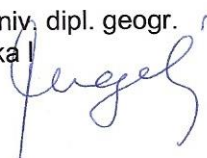 niv. dipl. geogr.
ka I